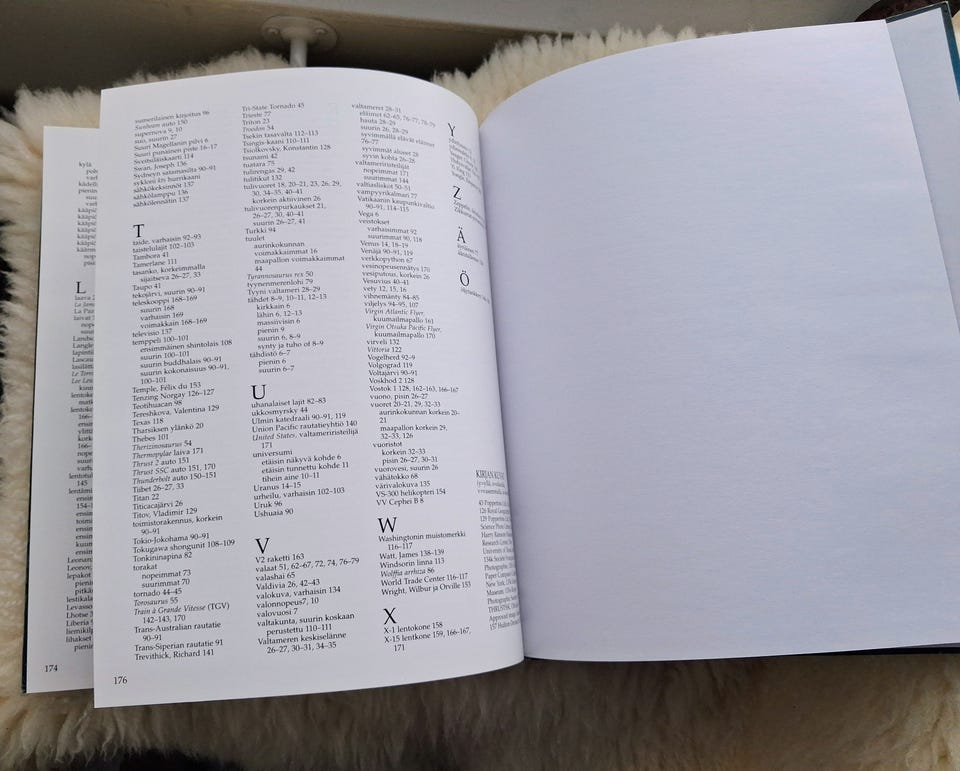 kylä
L
laava
174
sumerilainen kirjoitus 96
Sunbeam auto 150
supernova 9, 10
suo, suurin 27
Suuri Magellanin pilvi 6
Suuri punainen piste 16–17
Sveitsiläiskaarti 114
Swan, Joseph 136
Sydneyn satamasilta 90–91
sykloni ks hurrikaani
sähkökeksinnöt 137
sähkölamppu 136
sähkölennätin 137
T
taide, varhaisin 92–93
taistelulajit 102–103
Tambora 41
Tamerlane 111
tasanko, korkeimmalla
sijaitseva 26–27, 33
Taupo 41
tekojärvi, suurin 90–91
teleskooppi 168–169
suurin 168
varhaisin 169
voimakkain 168–169
televisio 137
temppeli 100–101
ensimmäinen shintolais 108
suurin 100–101
suurin buddhalais 90–91
suurin kokonaisuus 90–91,
100–101
Temple, Félix du 153
Tenzing Norgay 126–127
Teotihuacan 98
Tereshkova, Valentina 129
Texas 118
Tharsiksen ylänkö 20
Thebes 101
Therizinosaurus 54
Thermopylae laiva 171
Thrust 2 auto 151
Thrust SSC auto 151, 170
Thunderbolt auto 150–151
Tiibet 26–27, 33
Titan 22
Titicacajärvi 26
Titov, Vladimir 129
toimistorakennus, korkein
90–91
Tokio-Jokohama 90–91
Tokugawa shongunit 108–109
Tonkininapina 82
torakat
nopeimmat 73
suurimmat 70
tornado 44–45
Torosaurus 55
Train à Grande Vitesse (TGV)
142–143, 170
Trans-Australian rautatie
90–91
Trans-Siperian rautatie 91
Trevithick, Richard 141
176
Tri-State Tornado 45
Trieste 77
Triton 23
Troodon 54
Tsekin tasavalta 112–113
Tsingis-kaani 110–111
Tsiolkovsky, Konstantin 128
tsunami 42
tuatara 75
tulirengas 29, 42
tulitikut 132
tulivuoret 18, 20–21, 23, 26, 29,
30, 34–35, 40–41
korkein aktiivinen 26
tulivuorenpurkaukset 21,
26–27, 30, 40–41
suurin 26–27, 41
Turkki 94
tuulet
aurinkokunnan
voimakkaimmat 16
maapallon voimakkaimmat
44
Tyrannosaurus rex 50
tyynenmerenlohi 79
Tyyni valtameri 28–29
tähdet 8–9, 10–11, 12–13
kirkkain 6
lähin 6, 12–13
massiivisin 6
pienin 9
suurin 6, 8–9
synty ja tuho of 8–9
tähdistö 6–7
pienin 6
suurin 6–7
U
uhanalaiset lajit 82–83
ukkosmyrsky 44
Ulmin katedraali 90–91, 119
Union Pacific rautatieyhtiö 140
United States, valtameriristeilijä
171
universumi
etäisin näkyvä kohde 6
etäisin tunnettu kohde 11
tihein aine 10–11
Uranus 14–15
urheilu, varhaisin 102–103
Uruk 96
Ushuaia 90
V
V2 raketti 163
valaat 51, 62–67, 72, 74, 76–79
valashai 65
Valdivia 26, 42–43
valokuva, varhaisin 134
valonnopeus7, 10
valovuosi 7
valtakunta, suurin koskaan
perustettu 110–111
Valtameren keskiselänne
26–27, 30–31, 34–35
valtameret 28–31
eläimet 62–65, 76–77, 78–79
hauta 28–29
suurin 26, 28–29
syvimmällä elävät eläimet
76–77
syvimmät alueet 28
syvin kohta 26–28
valtameriristeilijät
nopeimmat 171
suurimmat 144
valtiasliskot 50–51
vampyyrikalmari 77
Vatikaanin kaupunkivaltio
90–91, 114–115
Vega 6
veistokset
varhaisimmat 92
suurimmat 90, 118
Venus 14, 18–19
Venäjä 90–91, 119
verkkopython 67
vesinopeusennätys 170
vesiputous, korkein 26
Vesuvius 40–41
vety 12, 15, 16
vihnemänty 84–85
viljelys 94–95, 107
Virgin Atlantic Flyer,
kuumailmapallo 161
Virgin Otsuka Pacific Flyer,
kuumailmapallo 170
virveli 132
Vittoria 122
Vogelherd 92–9
Volgograd 119
Voltajärvi 90–91
Voskhod 2 128
Vostok 1 128, 162–163, 166–167
vuono, pisin 26–27
vuoret 20–21, 29, 32–33
aurinkokunnan korkein 20–
21
maapallon korkein 29,
32–33, 126
vuoristot
korkein 32–33
pisin 26–27, 30–31
vuorovesi, suurin 26
vähätokko 68
värivalokuva 135
VS-300 helikopteri 154
VV Cephei B 8
W
Washingtonin muistomerkki
116–117
Watt, James 138–139
Windsorin linna 113
Wolffia arrhiza 86
World Trade Center 116–117
Wright, Wilbur ja Orville 153
X
X-1 lentokone 158
X-15 lentokone 159, 166–167,
171
Y
Z
Ä
Ö
KIRJAN